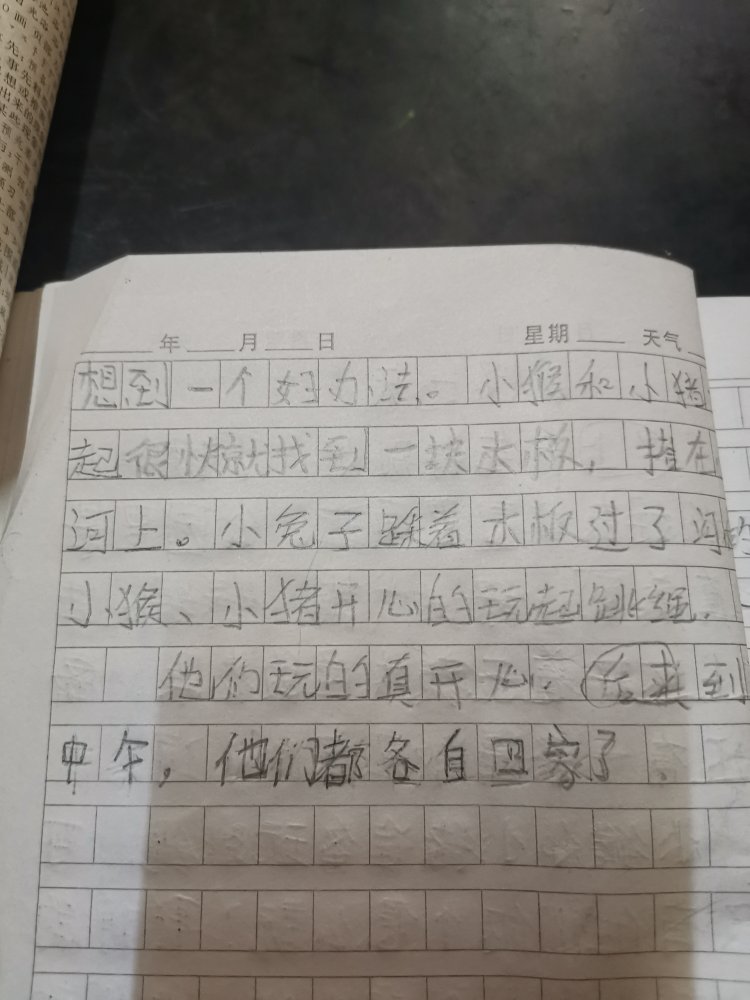 年 月 日 星期 天气
想到一个好办法。小猴和小猪
起很快就找到一块木板，搭在
河上。小兔子踩着木板过了河
小猴、小猪开心的玩起跳绳.
他们玩的真开心.后来到
中午，他们都各自回家了.